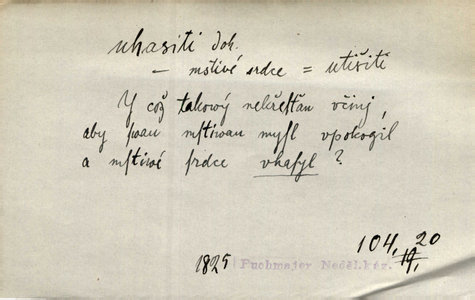 uhasiti dok.
— mstivé srdce = utišiti
Y což takowý nekřesťan včinj,
aby swau mstiwau mysl vpokogil
a mstiwé srdce vhasyl?
104, 20
19.
1825 Puchmajer Neděl.káz.